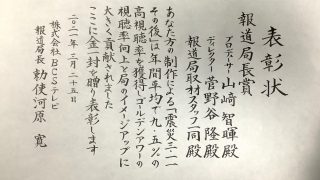 表彰状
報道局長賞
プロデューサー 山﨑智暉殿
ディレクター 菅野谷隆殿
報道局取材スタッフ一同殿
あなた方の制作による「震災三・一一
その後」は年間平均で九・五%の
高視聴率を獲得しゴールデンアワーの
視聴率向上と局のイメージアップに
大きく貢献されました
ここに金一封を贈り表彰します
二〇二一年三月二十五日
株式会社BCSテレビ
報道局長 勅使河原 寛